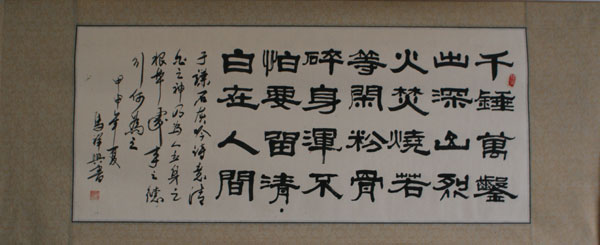 千錘萬鑿
出深山烈
火焚燒若
等閑粉骨
碎身渾不
怕要留清
白在人間
于謙石灰吟詩意清
之神乃為人立身之
根本
甲申年夏
書